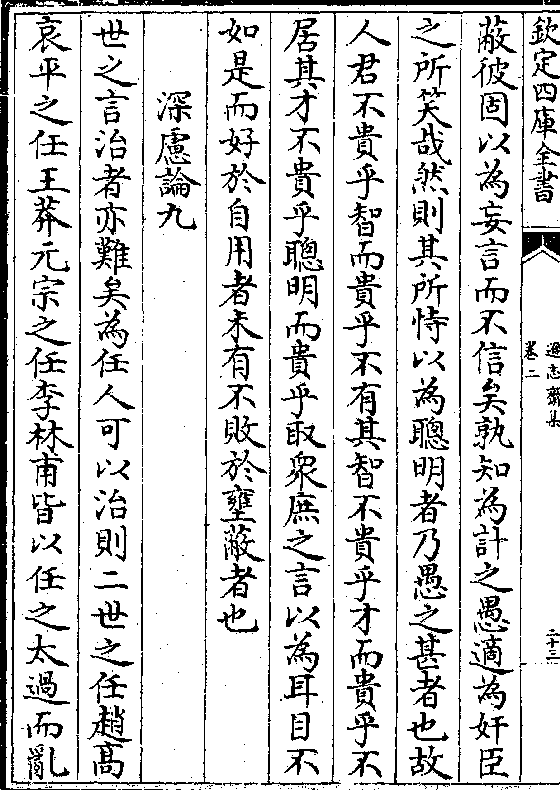 欽定四庫全書
遜志齋集
卷二
二十三
蔽彼固以為妄言而不信矣孰知為計之愚適為奸臣
之所笑哉然則其所恃以為聰明者乃愚之甚者也故
人君不貴乎智而貴乎不有其智不貴乎才而貴乎不
居其才不貴乎聰明而貴乎取衆庶之言以為耳目不
如是而好於自用者未有不敗於壅蔽者也
深慮論九
世之言治者亦難矣為任人可以治則二世之任趙高
哀平之任王莽元宗之任李林甫皆以任之太過而亂